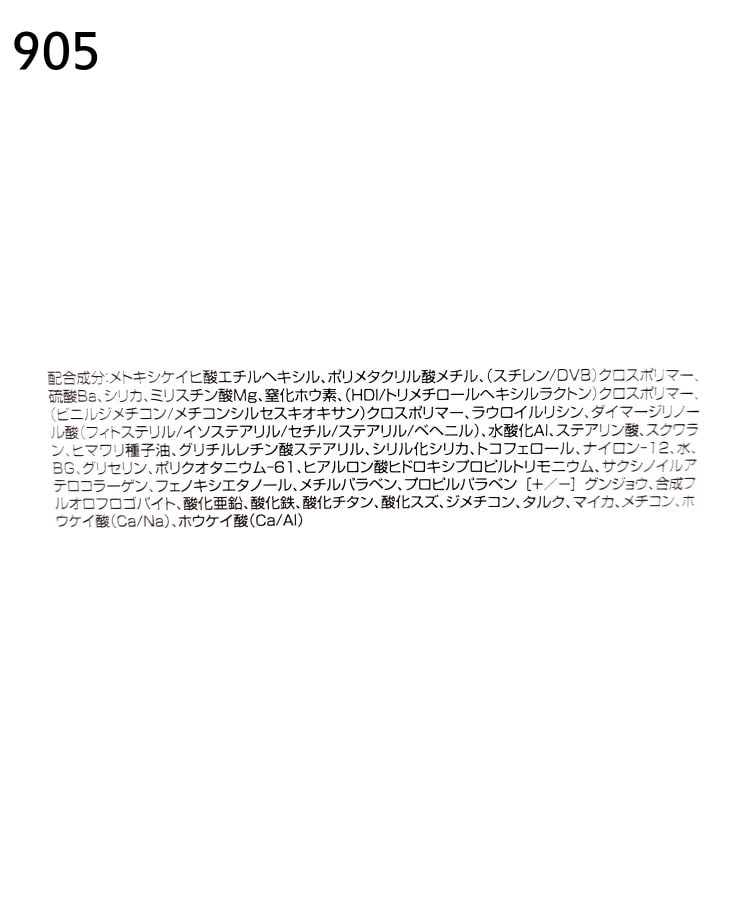 905
配合成分:メトキシケイヒ酸エチルヘキシル、ポリメタクリル酸メチル、(スチレン/DVB)クロスポリマー、
硫酸Ba、シリカ、ミリスチン酸Mg、窒化ホウ素、(HDI/トリメチロールヘキシルラクトン)クロスポリマー、
(ビニルジメチコン/メチコンシルセスキオキサン)クロスポリマー、ラウロイルリシン、ダイマージリノー
ル酸(フィトステリル/イソステアリル/セチル/ステアリル/ベヘニル)、水酸化Al、ステアリン酸、スクワラ
ン、ヒマワリ種子油、グリチルレチン酸ステアリル、シリル化シリカ、トコフェロール、ナイロン-12、水、
BG、グリセリン、ポリクオタニウム-61、ヒアルロン酸ヒドロキシプロピルトリモニウム、サクシノイルア
テロコラーゲン、フェノキシエタノール、メチルパラベン、プロピルパラベン [+/-] グンジョウ、合成フ
ルオロフロゴパイト、酸化亜鉛、酸化鉄、酸化チタン、酸化スズ、ジメチコン、タルク、マイカ、メチコン、ホ
ウケイ酸(Ca/Na)、ホウケイ酸(Ca/Al)